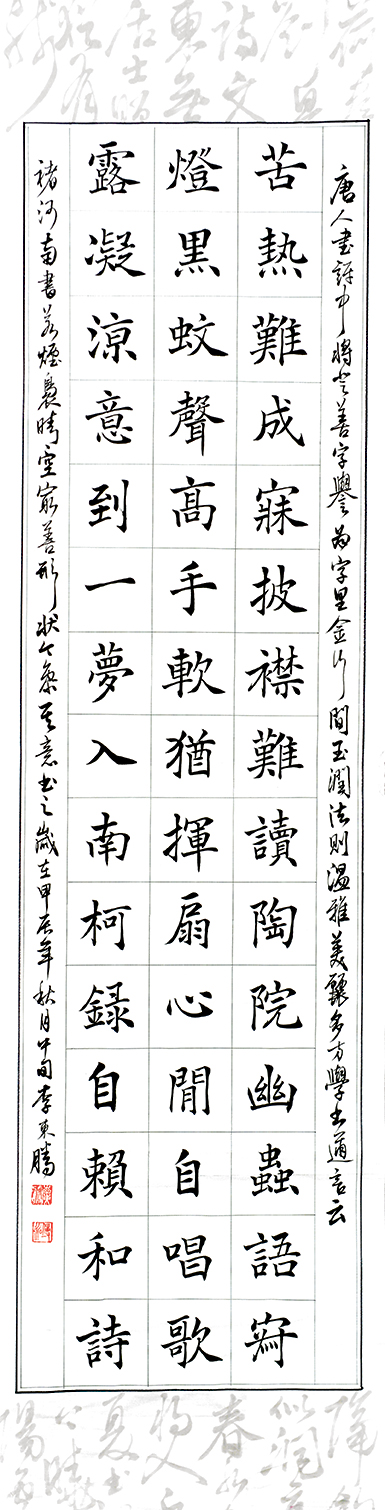 唐人書評中將登善字譽為字里金行間玉潤法則溫雅美麗多方學書邇言云
苦熱難成寐披襟難讀陶院幽蟲語窅
燈黑蚊聲高手軟猶揮扇心閒自唱歌
露凝涼意到一夢入南柯録自賴和詩
褚河南書若煙裊晴空最善形狀今參其意書之歲在甲辰年秋月中旬李東騰